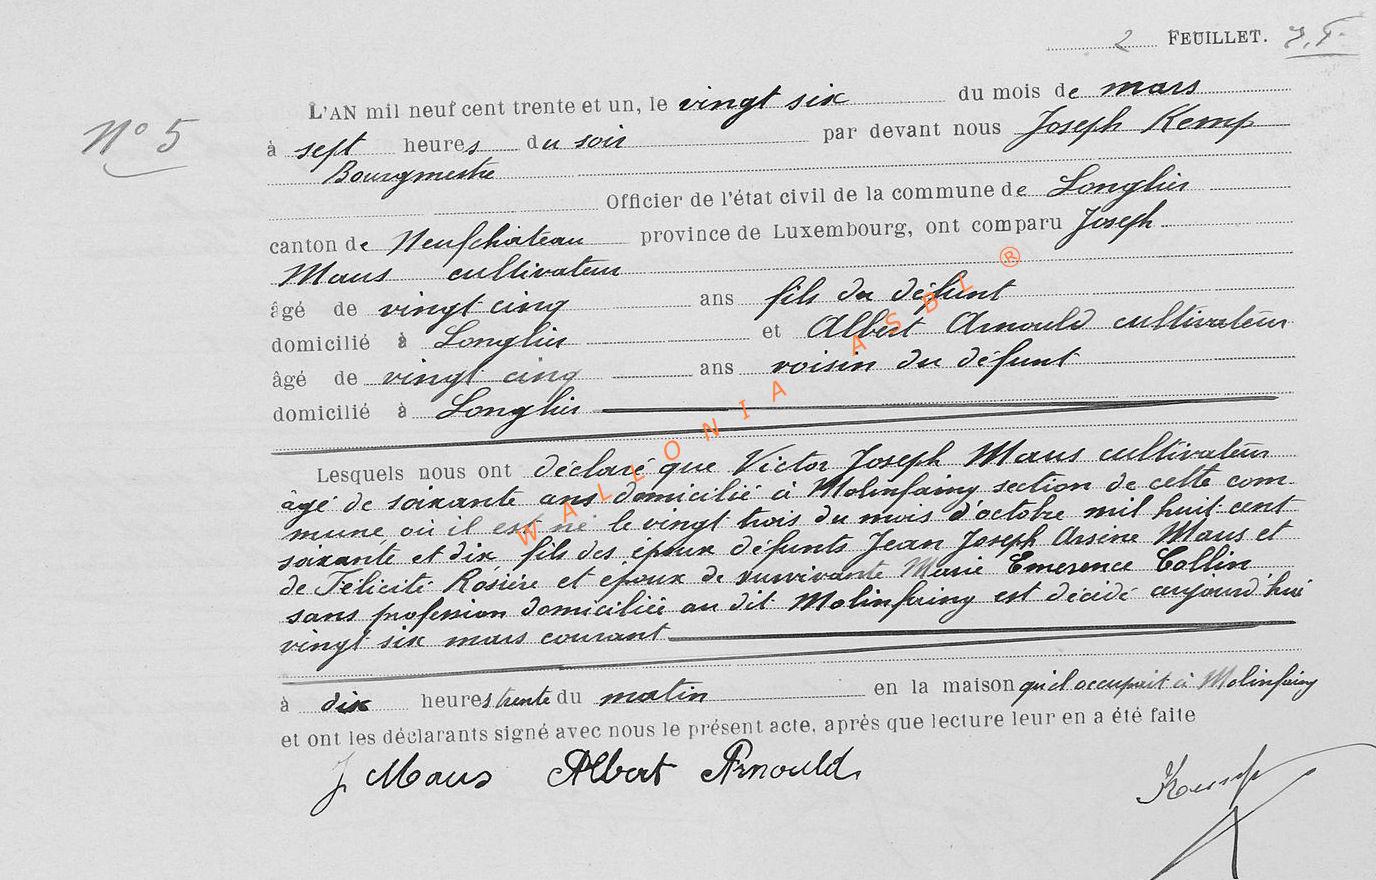 2 FEUILLET. J.F.
N° 5
L'AN mil neuf cent trente et un, le vingt six du mois de mars
à sept heures du soir par devant nous Joseph Kemp
Bourgmestre
Officier de l'état civil de la commune de Longlier
canton de Neufchâteau province de Luxembourg, ont comparu Joseph
Maus cultivateur
âgé de vingt cinq ans fils du défunt
domicilié à Longlier et Albert Arnould cultivateur
âgé de vingt cinq ans voisin du défunt
domicilié à Longlier
Lesquels nous ont déclaré que Victor Joseph Maus cultivateur
âgé de soixante ans domicilié à Molinfaing section de cette com-
mune où il est né le vingt trois du mois d'octobre mil huit cent
soixante et dix fils des époux défunts Jean Joseph Arsène Maus et
de Félicité Rosière et époux de survivante Marie Emerence Collin
sans profession domiciliée au dit Molinfaing est décédé aujourd'hui
vingt six mars courant
à dix heures trente du matin en la maison qu'il occupait à Molinfaing
et ont les déclarants signé avec nous le présent acte, après que lecture leur en a été faite
J Maus Albert Arnould
Kemp
WALLONIA ASBL ®